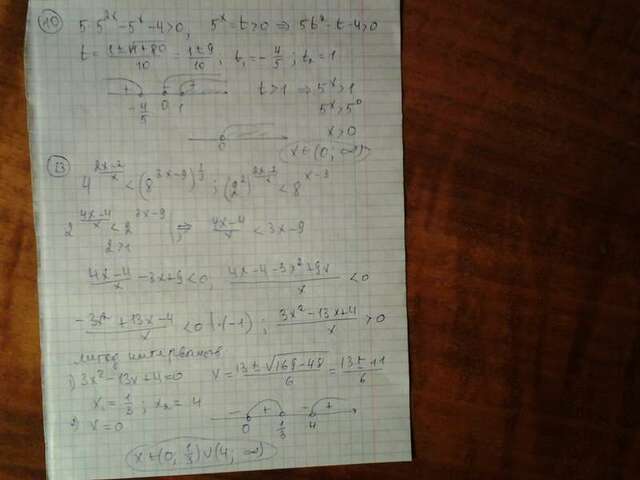 10) 5·5^{2x} - 5^x - 4 > 0, 5^x = t > 0 ⇒ 5t² - t - 4 > 0
t = (1 ± √(1 + 80))/10 = (1 ± 9)/10, t₁ = -4/5; t₂ = 1
+ -4/5 0 1 +
t > 1 ⇒ 5^x > 1
5^x > 5^0
0
x > 0
x ∈ (0; ∞)
13) 4^{(2x-2)/x} < (8^{3x-9})^{1/3}; (2²)^{(2x-2)/x} < 8^{x-3}
2^{(4x-4)/x} < 2^{3x-9} | ⇒ (4x-4)/x < 3x-9
2 > 1
(4x-4)/x - 3x + 9 < 0, (4x - 4 - 3x² + 9x)/x < 0
(-3x² + 13x - 4)/x < 0 | ·(-1); (3x² - 13x + 4)/x > 0
метод интервалов
1) 3x² - 13x + 4 = 0 x = (13 ± √(169 - 48))/6 = (13 ± 11)/6
x₁ = 1/3; x₂ = 4
2) x = 0
- 0 + 1/3 - 4 +
x ∈ (0; 1/3) ∪ (4; ∞)